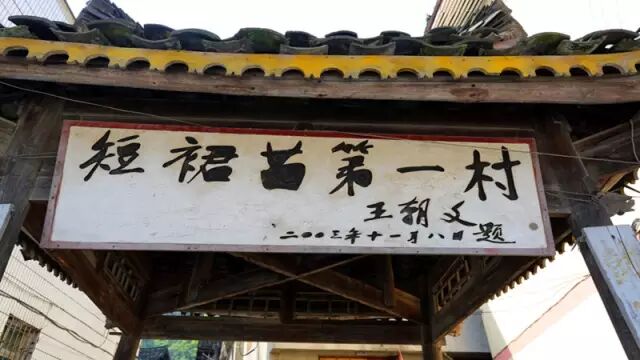 短裙苗第一村
王朝文
二〇〇三年十一月八日题